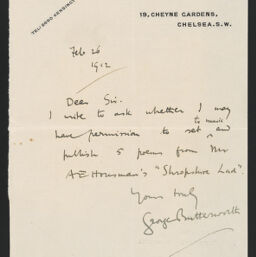 19, CHEYNE GARDENS,
CHELSEA. S.W.
Feb 26
1912
Dear Sir.
I write to ask whether I may
have permission to set to music and
publish 5 poems from Mr
A E Housman's "Shropshire Lad".
Yours truly
George Butterworth